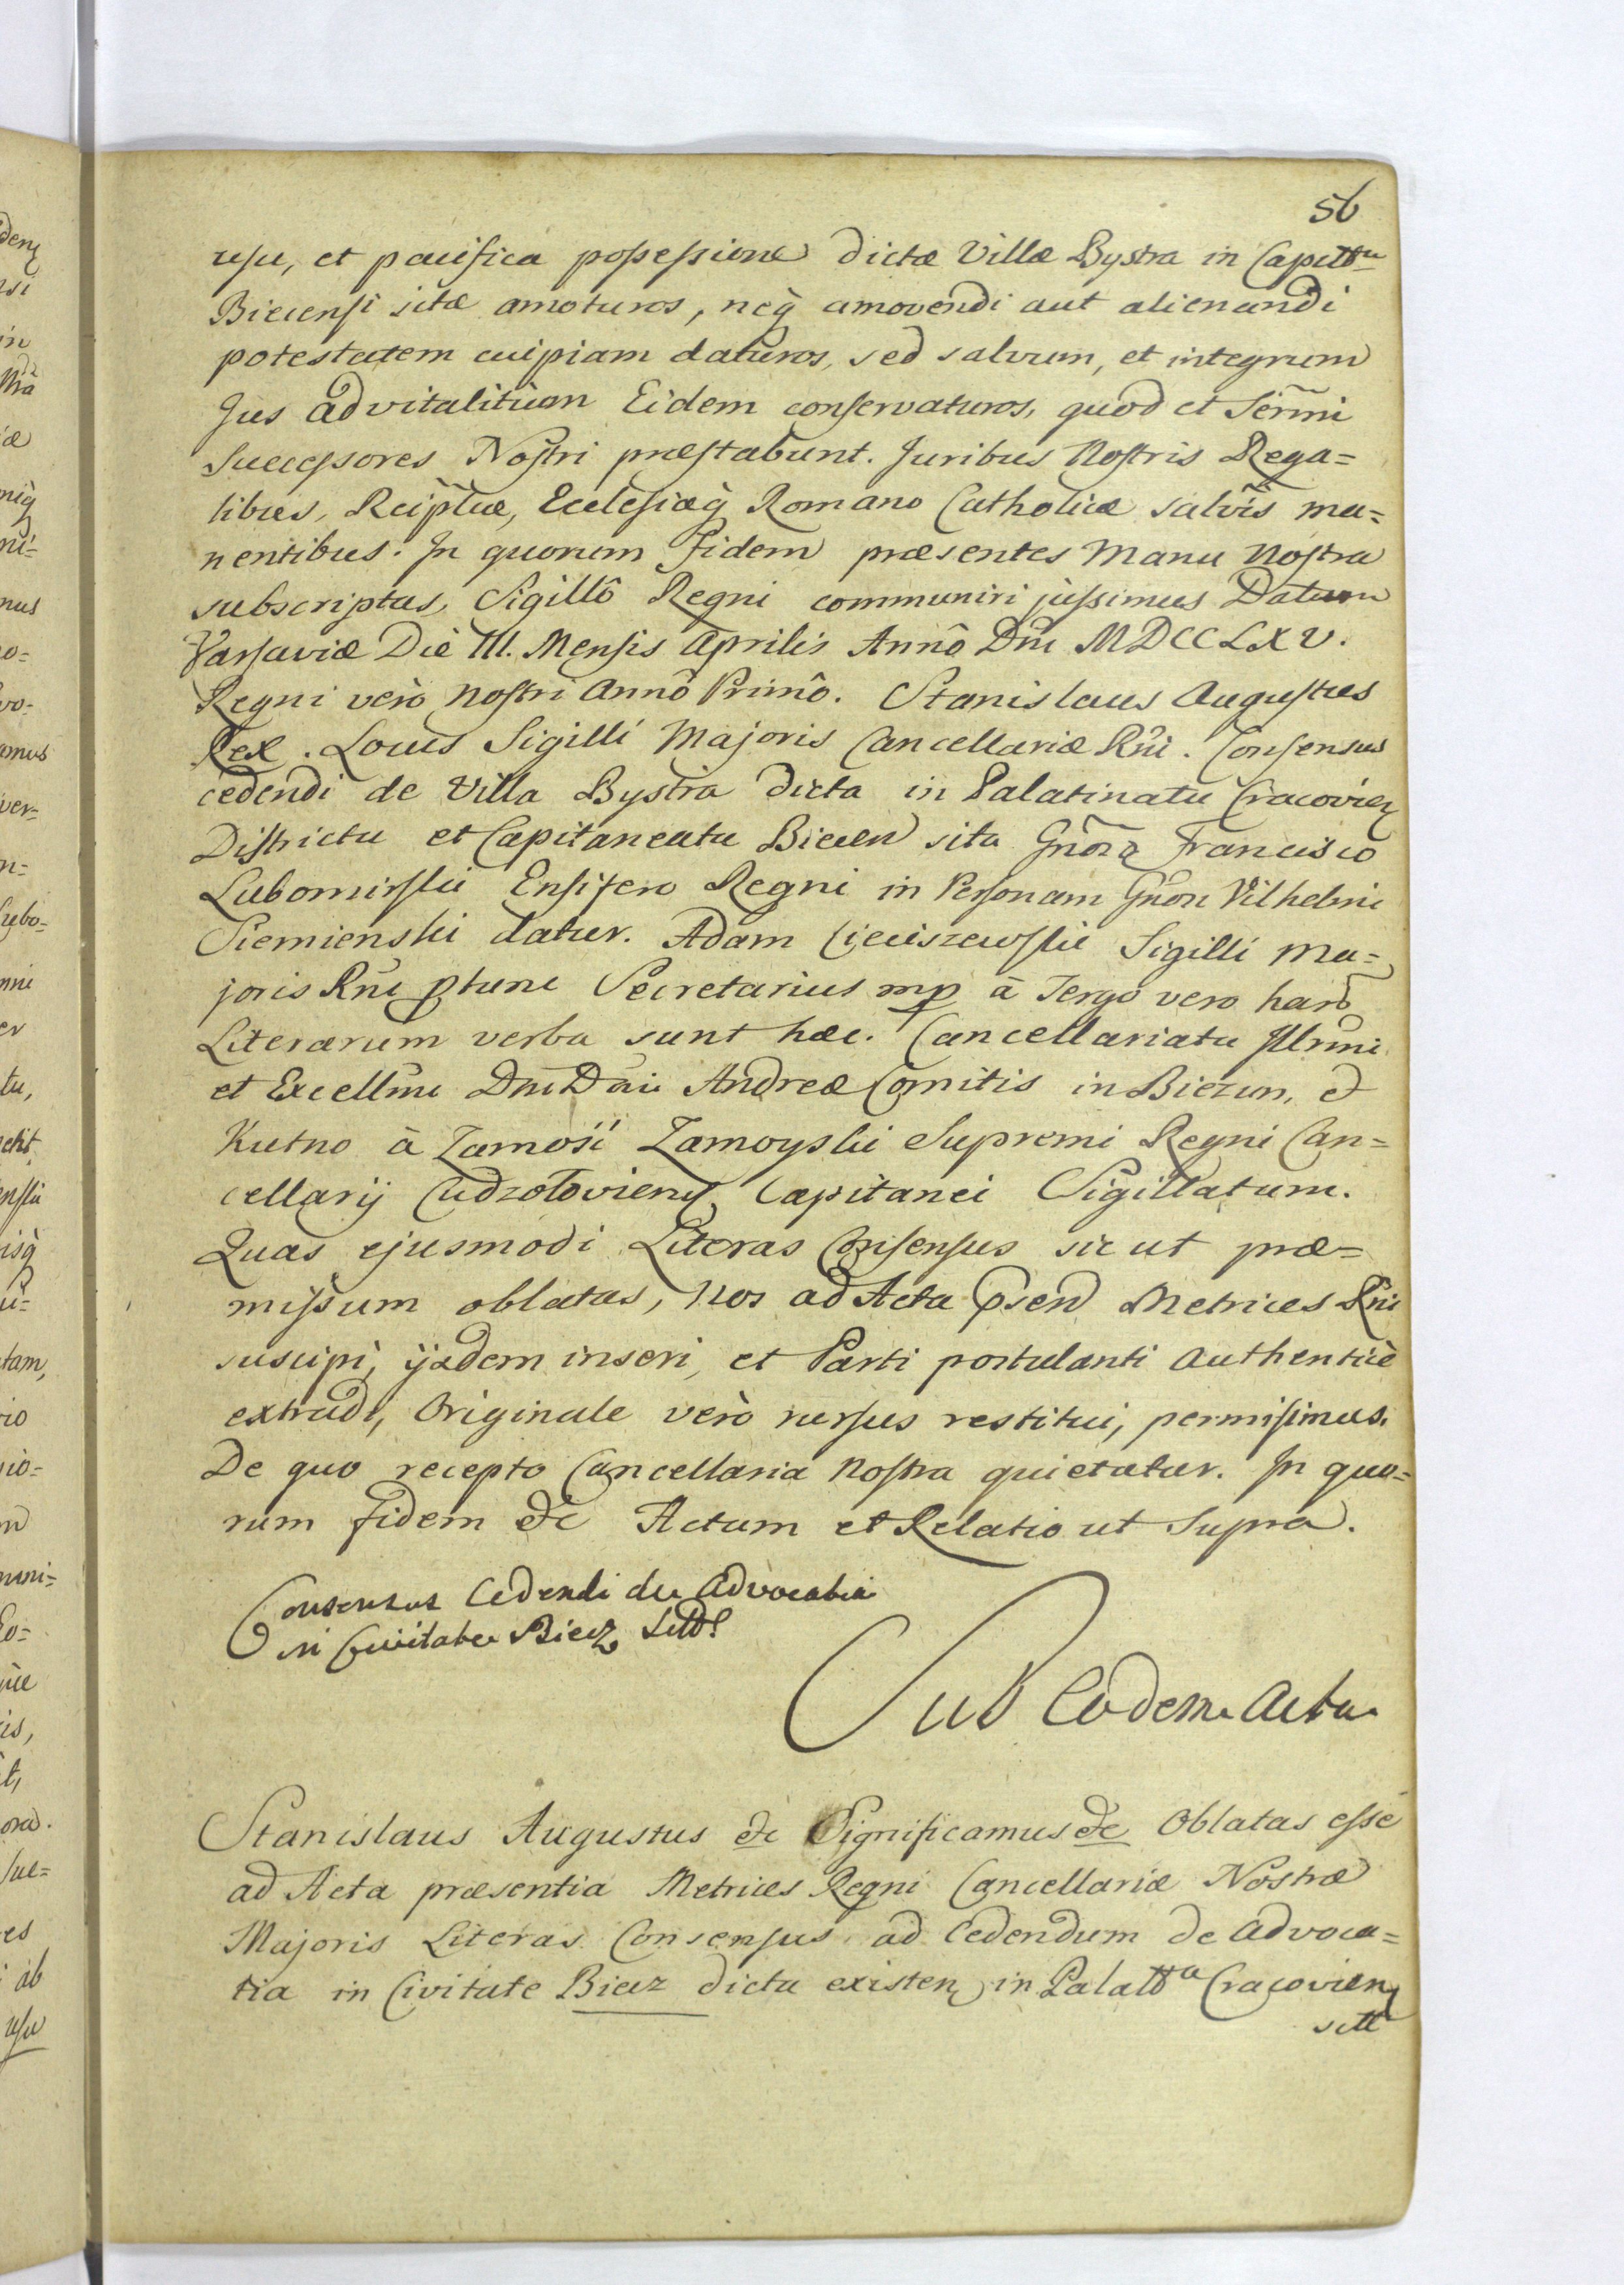 56
usu, et pacifica possessione dictæ Villæ Bystra in Capittu
Biecensi sitæ amoturos, neq̀ amovendi aut alienandi
potestatem cuipiam daturos, sed salvum, et integrum
Jus advitalitium Eidem conservaturos, quod et Serm̃i
Successores Nostri præstabunt. Juribus Nostris Rega=
libus, Reip̃tcæ, Ecclesiæq̀ Romano Catholicæ salvis ma=
nentibus. In quorum Fidem præsentes Manu Nostra
subscriptas, Sigillô Regni communiri jussimus Datum
Varsaviæ Die III. Mensis Aprilis Annô Dni MDCCLXV.
Regni verò Nostri Annô Primô. Stanislaus Augustus
Rex. Locus Sigilli Majoris Cancellariæ Rñi. Consensus
cedendi de Villa Bystra dicta in Palatinatu Cracovien
Districtu et Capitaneatu Biecen sita Gñoro Francisco
Lubomirski Ensifero Regni in Personam Gñori Vilhelmi
Siemienski datur. Adam Cieciszewski Sigilli Ma=
joris Rñi ptunc Secretarius mp à Tergo vero harũ
Literarum verba sunt hæc. Cancellariatu Illrmi
et Excellmi Dni Dñi Andreæ Comitis in Biezun, et
Kutno à Zamość Zamoyski Supremi Regni Can=
cellarij Capitanei Sigillatum.
Quas ejusmodi Literas Consensus sicut præ=
missum oblatas, Nos ad Acta psen Metrices Rñi
suscipi, ijsdem inseri, et Parti postulanti Authenticè
extradi, Originale verò rursus restitui, permisimus.
De quo recepto Cancellaria Nostra quietatur. In quo=
rum fidem &c Actum et Relatio ut Supra.
Consensus Cedendi de Advocatia
in Civitate Biecz
Sub Eodem Actu
Stanislaus Augustus &c Significamus &c Oblatas esse
ad Acta præsentia Metrices Regni Cancellariæ Nostræ
Majoris Literas Consensus ad Cedendum de Advoca=
tia in Civitate Biecz dicta existen in Palatta Cracovien